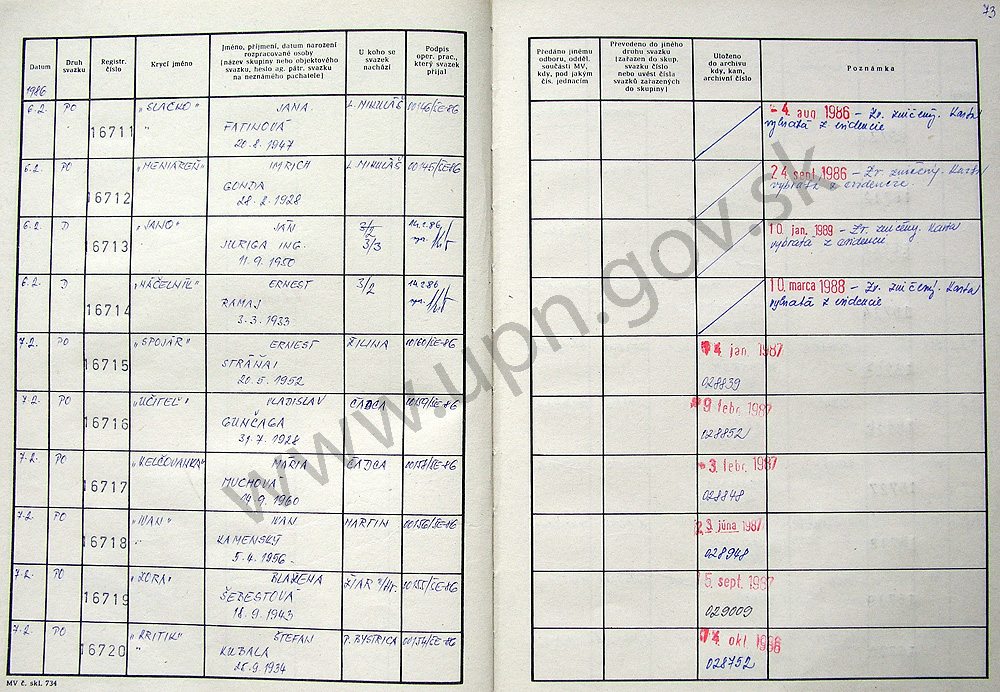 73
Datum
Druh svazku
Registr. číslo
Krycí jméno
Jméno, příjmení, datum narození
rozpracované osoby
[název skupiny nebo objektového
svazku, heslo ag. pátr. svazku
na neznámého pachatele]
U koho se
svazek
nachází
Podpis
oper. prac.,
který svazek
přijal
Předáno jinému
odboru, odděl.
součásti MV,
kdy, pod jakým
čís. jednacím
Převedeno do jiného
druhu svazku
[zařazen do skup.
svazku číslo
nebo uvést čísla
svazků zařazených
do skupiny]
Uloženo
do archivu
kdy, kam,
archivní číslo
Poznámka
1986
6.2. PO 16711 „SLAČKO" JANA L. MIKULÁŠ 00146/ČE-86
FATINOVÁ
20.8.1947
- 4. aug 1986 - Zv. zničený. Karta
vybratá z evidencie
6.2. PO 16712 IMRICH L. MIKULÁŠ 00145/ČE-86
GONDA
28.2.1928
24. sept. 1986 - Zv. zničený. Karta
vybratá z evidencie
6.2. D 16713 „JANO" JÁN 3/2 14.2.86
JURIGA ING. 3/3
11.9.1950
10. jan. 1989 - Zv. zničený. Karta
vybratá z evidencie
6.2. D 16714 „NÁČELNÍK" ERNEST 3/2 14.2.86
RAMAJ
3.3.1933
10. marca 1988 - Zv. zničený. Karta
vybratá z evidencie
7.2. PO 16715 „SPOJÁR" ERNEST ŽILINA 00160/ČE-86
STRÁŇAI
20.5.1952
14. jan. 1987
028839
7.2. PO 16716 „UČITEĽ" VLADISLAV ČADCA 00159/ČE-86
GUNČAGA
31.7.1928
9. febr. 1987
028852
7.2. PO 16717 „KELČOVANKA" MÁRIA ČADCA 00157/ČE-86
MUCHOVÁ
14.9.1960
3. febr. 1987
028848
7.2. PO 16718 „IVAN" IVAN MARTIN 00156/ČE-86
KAMENSKÝ
5.4.1956
23. júna 1987
028948
7.2. PO 16719 „ZORA" BLAŽENA ŽIAR n/Hr. 00155/ČE-86
ŠEBESTOVÁ
18.9.1943
5. sept. 1987
029009
7.2. PO 16720 „KRITIK" ŠTEFAN P. BYSTRICA 00154/ČE-86
KUBALA
1934
14. okt. 1986
028752
MV č. skl. 734
www.upn.gov.sk